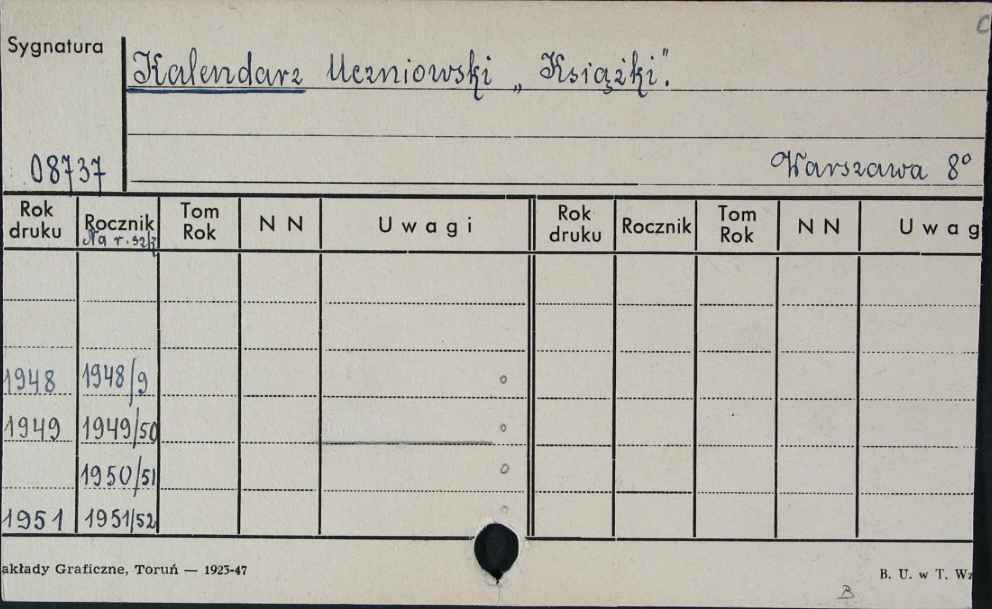 Sygnatura
Kalendarz Uczniowski „Książki".
08737
Warszawa 8º
Rok druku Rocznik Tom Rok N N Uwagi Rok druku Rocznik Tom Rok N N Uwag
Na r.
1948 1948/9
1949 1949/50
1950/51
1951 1951/52
akłady Graficzne, Toruń — 1923-47
B. U. w T. Wz
B